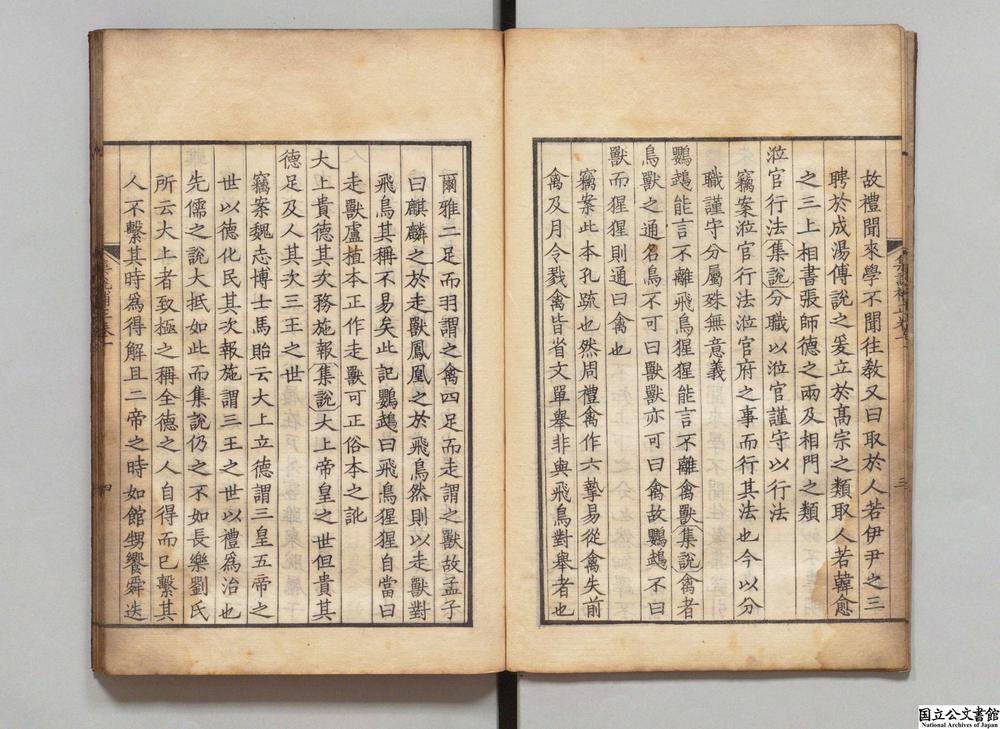 故禮聞來學不聞往敎又曰取於人若伊尹之三
聘於成湯傅說之爰立於髙宗之類取人若韓愈
之三上相書張師德之兩及相門之類
涖官行法集說分職以涖官謹守以行法
竊案涖官行法涖官府之事而行其法也今以分
職謹守分屬殊無意義
鸚鵡能言不離飛鳥猩猩能言不離禽獸集說禽者
鳥獸之通名鳥不可曰獸獸亦可曰禽故鸚鵡不曰
獸而猩猩則通曰禽也
竊案此本孔疏也然周禮禽作六摯易從禽失前
禽及月令戮禽皆省文單舉非與飛鳥對舉者也
集說補正卷一
三
爾雅二足而羽謂之禽四足而走謂之獸故孟子
曰麒麟之於走獸鳳凰之於飛鳥然則以走獸對
飛鳥其稱不易矣此記鸚鵡曰飛鳥猩猩自當曰
走獸盧植本正作走獸可正俗本之訛
大上貴德其次務施報集說大上帝皇之世但貴其
德足及人其次三王之世
竊案魏志博士馬貽云大上立德謂三皇五帝之
世以德化民其次報施謂三王之世以禮爲治也
先儒之說大抵如此而集說仍之不如長樂劉氏
所云大上者致極之稱全德之人自得而已繫其
人不繫其時爲得解且二帝之時如館甥饗舜迭
集說補正卷一
四
国立公文書館
National Archives of Japan